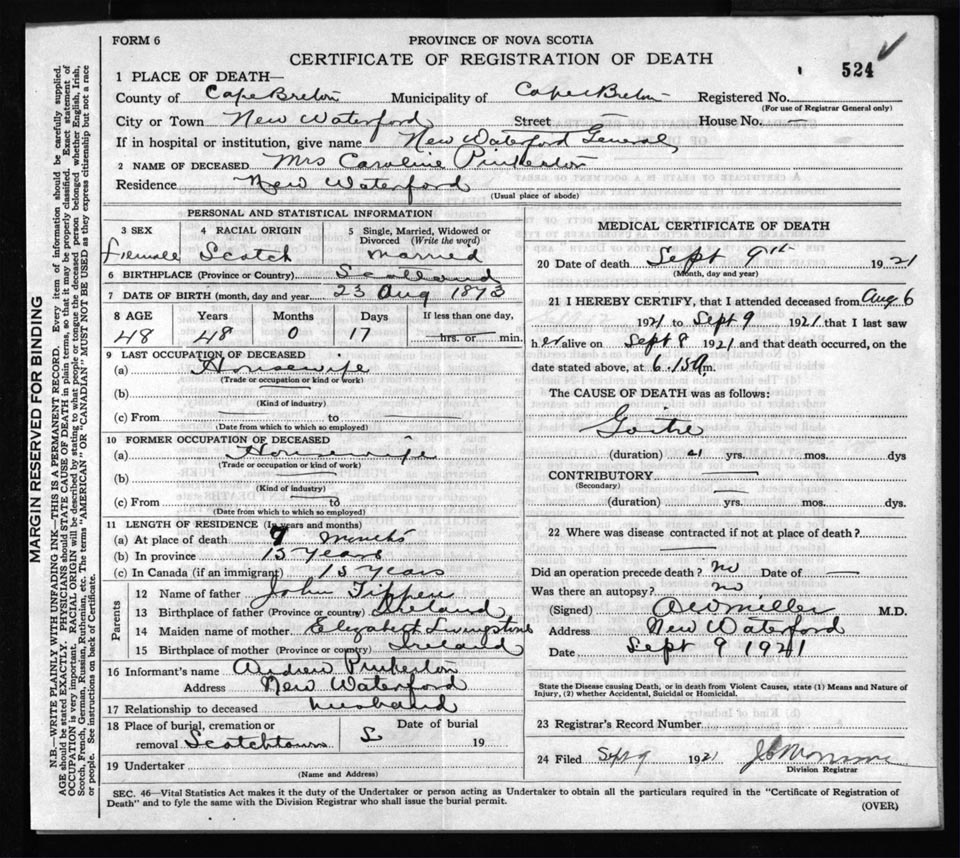 FORM 6
PROVINCE OF NOVA SCOTIA
CERTIFICATE OF REGISTRATION OF DEATH
524
1 PLACE OF DEATH—
County of Cape Breton Municipality of Cape Breton Registered No.
(For use of Registrar General only)
City or Town New Waterford Street House No. —
If in hospital or institution, give name New Waterford General
2 NAME OF DECEASED Mrs Caroline Pinkerton
Residence New Waterford
(Usual place of abode)
PERSONAL AND STATISTICAL INFORMATION
3 SEX
Female
4 RACIAL ORIGIN
Scotch
5 Single, Married, Widowed or Divorced (Write the word)
Married
6 BIRTHPLACE (Province or Country) Scotland
7 DATE OF BIRTH (month, day and year 23 Aug 1873
8 AGE Years Months Days If less than one day,
48 48 0 17 hrs. or min.
9 LAST OCCUPATION OF DECEASED
(a) Housewife
(Trade or occupation or kind or work)
(b) —
(Kind of industry)
(c) From — to —
(Date from which to which so employed)
10 FORMER OCCUPATION OF DECEASED
(a) Housewife
(Trade or occupation or kind of work)
(b) —
(Kind of industry)
(c) From — to
(Date from which to which so employed)
11 LENGTH OF RESIDENCE (In years and months)
(a) At place of death 9 months
(b) In province 15 years
(c) In Canada (if an immigrant) 15 years
Parents
12 Name of father John Tippen
13 Birthplace of father (Province or country) Ireland
14 Maiden name of mother Elizabeth Livingstone
15 Birthplace of mother (Province or country) Ireland
16 Informant's name Andrew Pinkerton
Address New Waterford
17 Relationship to deceased husband
18 Place of burial, cremation or removal Scotchtown
Date of burial
19
19 Undertaker
(Name and Address)
MEDICAL CERTIFICATE OF DEATH
20 Date of death Sept 9th 1921
(Month, day and year)
21 I HEREBY CERTIFY, that I attended deceased from Aug 6
1921 to Sept 9 1921 that I last saw
her alive on Sept 8 1921 and that death occurred, on the
date stated above, at 6.15 a m.
The CAUSE OF DEATH was as follows:
Goitre
(duration) 21 yrs. mos. dys
CONTRIBUTORY —
(Secondary)
(duration) — yrs. mos. dys.
22 Where was disease contracted if not at place of death?
—
Did an operation precede death? no Date of —
Was there an autopsy? no
(Signed) M.D.
Address New Waterford
Date Sept 9 1921
State the Disease causing Death, or in death from Violent Causes, state (1) Means and Nature of
Injury, (2) whether Accidental, Suicidal or Homicidal.
23 Registrar's Record Number
24 Filed Sept 9 1921
Division Registrar
SEC. 46—Vital Statistics Act makes it the duty of the Undertaker or person acting as Undertaker to obtain all the particulars required in the "Certificate of Registration of
Death" and to fyle the same with the Division Registrar who shall issue the burial permit.
(OVER)
MARGIN RESERVED FOR BINDING
N.B.—WRITE PLAINLY WITH UNFADING INK—THIS IS A PERMANENT RECORD. Every item of information should be carefully supplied.
AGE should be stated EXACTLY. PHYSICIANS should STATE CAUSE OF DEATH in plain terms, so that it may be properly classified. Exact statement of
OCCUPATION is very important. RACIAL ORIGIN will be described by stating to what people or tongue the deceased person belonged whether English, Irish,
Scotch, French, German, Russian, Ruthenian, etc. The terms "AMERICAN" OR "CANADIAN" MUST NOT BE USED as they express citizenship but not a race
or people. See instructions on back of Certificate.